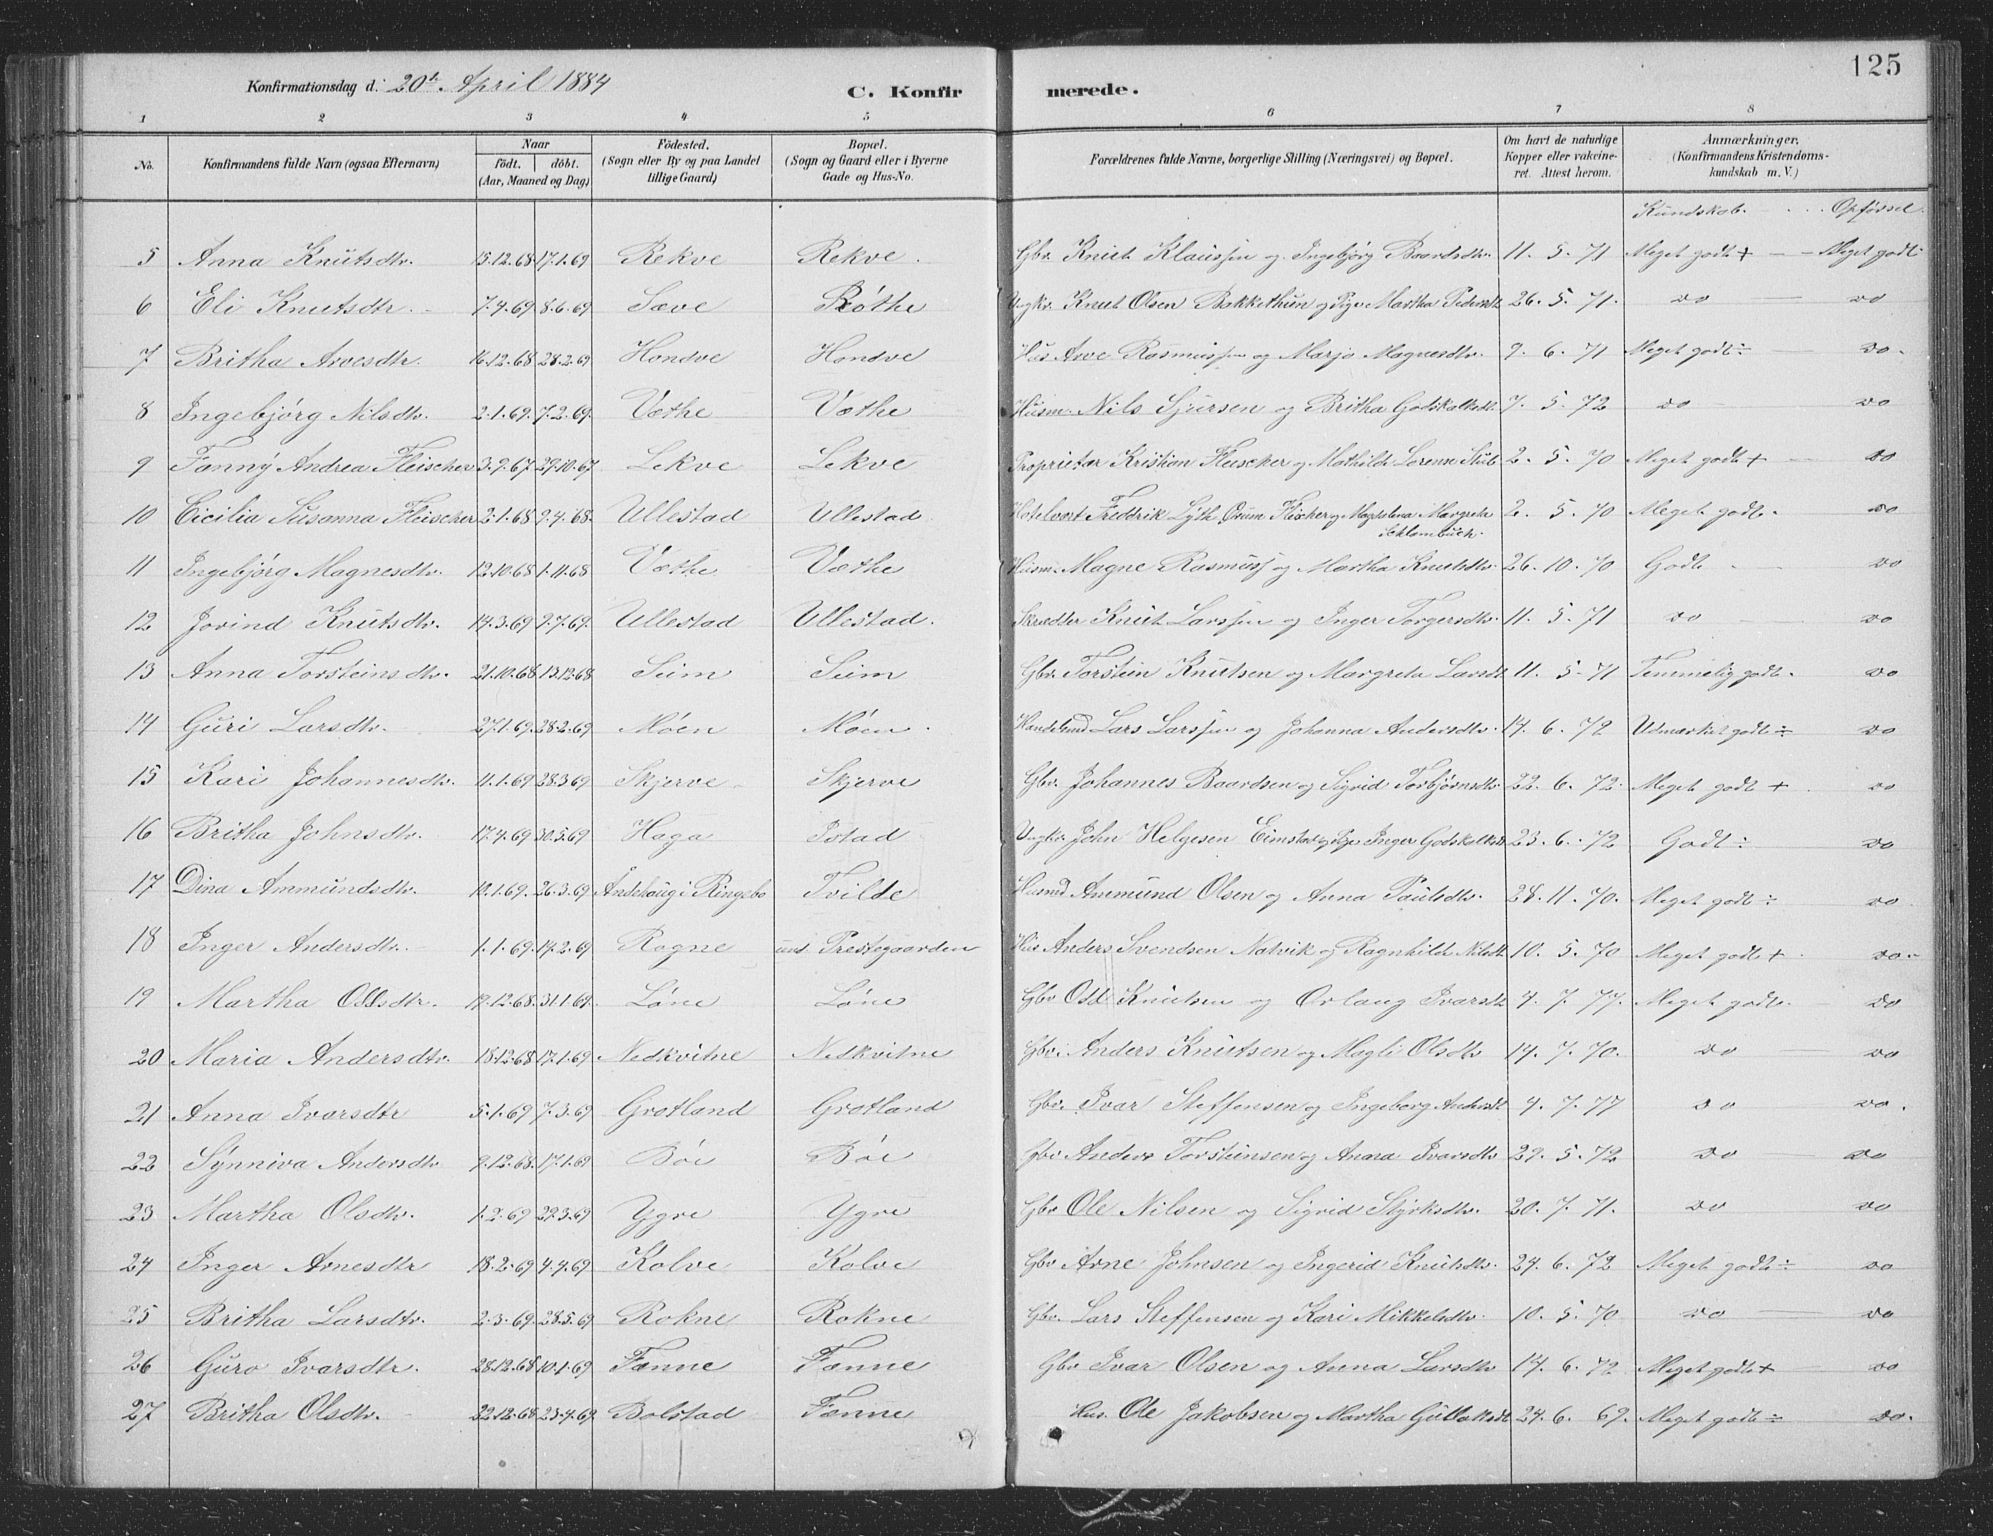 125
Konfirmationsdag d. 20de April 1884
C. Konfirmerede.
1 2 3 4 5 6 7 8
No. Konfirmandens fulde Navn (ogsaa Efternavn) Naar födt. döbt. (Aar, Maaned og Dag) Födested. (Sogn eller By og paa Landet tillige Gaard) Bopæl. (Sogn og Gaard eller i Byerne Gade og Hus-No. Forældrenes fulde Navne, borgerlige Stilling (Næringsvei) og Bopæl. Om havt de naturlige Kopper eller vakcineret. Attest herom. Anmærkninger, (Konfirmandens Kristendomskundskab m. V.)
Kundskab. Opførsel.
5 Anna Knutsdtr. 15.12.68 17.1.69 Rekve Rekve. Gbr. Knut Klaussen og Ingebjørg Baardsdtr. 11. 5. 71 Meget godt + Meget godt
6 Eli Knutsdtr. 7.4.69 8.6.69 Sæve Røthe Ungkr. Knut Olsen Bakkethun og Pige Martha Pedersdt 26. 5. 71. do do
7 Britha Arvesdtr. 16.12.68 28.2.69 Hondve Hondve Hus Arve Rasmussen og Marja Magnesdtr. 9. 6. 71 Meget godt ÷ do.
8 Ingebjørg Nilsdtr. 2.1.69. 7.2.69. Væthe Væthe Husm. Nils Sjursen og Britha Godskalksdt. 7. 5. 72 do do
9 Fanny Andrea Fleischer 3.9.67 29.10.67 Lekve Lekve Proprietær Kristian Fleischer og Mathilde Lorenn Stub 2. 5. 70 Meget godt + do
10 Cicilia Susanna Fleischer 2.1.68 9.4.68. Ullestad Ullestad Hotelvært Fredrik Lyth Ørum Fleischer og Magdalena Margreta Schlambuch. 2. 5. 70 Meget godt. do
11 Ingebjørg Magnesdtr. 12.10.68 1.11.68 Væthe Væthe Husm. Magne Rasmuss og Martha Knutsdtr. 26. 10. 70 Godt do
12 Jorind Knutsdtr. 14.3.69 2.7.69. Ullestad Ullestad. Skrædder Knut Larssen og Inger Torgersdtr. 11. 5. 71 do do
13 Anna Torsteinsdtr. 21.10.68 13.12.68 Seim Seim Gbr. Torstein Knutsen og Margreta Larsdt 11. 5. 71 Temmelig godt. do
14 Guri Larsdtr. 27.1.69. 28.2.69 Møen Møen. Handelsmd Lars Larssen og Johanna Andersdtr. 14. 6. 72 Udmærket godt ÷ do
15 Kari Johannesdtr. 11.1.69 28.3.69 Skjerve Skjerve Gbr. Johannes Baardsen og Sigrid Torbjørnsdtr. 22. 6. 72. Meget godt + do
16 Britha Johnsdtr. 17.4.69 30.5.69 Haga Istad Ungkr. John Helgesen Eimstad og Pige Inger Godskalksdt 23. 6. 72 Godt ÷ do
17 Dina Ammundsdtr. 10.1.69. 26.3.69 Åndehaug i Ringebo Tvilde Husmd Ammund Olsen og Anna Paulsdtr. 28. 11. 70. Meget godt ÷ do
18 Inger Andersdtr. 1.1.69 14.2.69 Rogne und. Prestegaarden Hus Anders Svendsen Natvik og Ragnhilde Nilsdt 10. 5. 70 Meget godt + do.
19 Martha Oddsdtr. 19.12.68. 31.1.69. Løne Løne Gbr Odd Knutsen og Orlaug Ivarsdt 4. 7. 77. Meget godt. do
20 Maria Andersdtr. 18.12.68 17.1.69 Nedkvitne Nedkvitne Gbr. Anders Knutsen og Magli Olsdtr 14. 7. 70. do do
21 Anna Ivarsdtr 5.1.69 7.3.69 Grotland Grotland Gbr. Ivar Steffensen og Ingeborg Andersdt 4. 7. 77 do do.
22 Synniva Andersdtr 9.12.68. 17.1.69 Bøe Bøe Gbr Anders Torsteinsen og Anna Ivarsdtr 29. 5. 72 do do
23 Martha Olsdtr. 1.2.69 29.3.69 Ygre Ygre Gbr Ole Nilsen og Sigrid Styrksdtr. 20. 7. 71. do do
24 Inger Arnesdtr 18.2.69 4.4.69 Kolve Kolve Gbr Arne Johnsen og Ingerid Knutsdtr. 24. 6. 72 Meget godt ÷ do
25 Britha Larsdtr. 2.3.69. 28.5.69 Rokne Rokne Gbr. Lars Steffensen og Kari Mikkelsdtr. 10. 5. 70 do do
26 Guro Ivarsdtr. 28.12.68 10.1.69 Fænne Fænne Gbr Ivar Olsen og Anna Larsdtr 14. 6. 72 Meget godt + do
27 Britha Olsdtr. 22.12.68 23.4.69. Bolstad Fænne Hus. Ole Jakobsen og Martha Gullaksdt 24. 6. 69. Meget godt ÷ do.